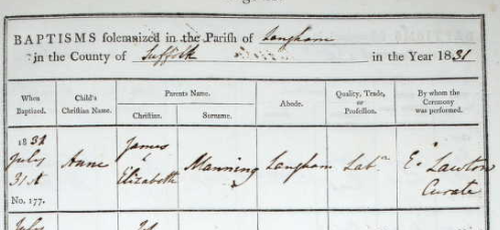 BAPTISMS solemnized in the Parish of Langham
in the County of Suffolk in the Year 1831
When Baptized. Child's Christian Name. Parents Name. Abode. Quality, Trade, or Profession. By whom the Ceremony was performed.
Christian. Surname.
1831
July
31st
No. 177.
Anne
James
&
Elizabeth
Manning
Langham
Labr
E. Lawton
Curate
July